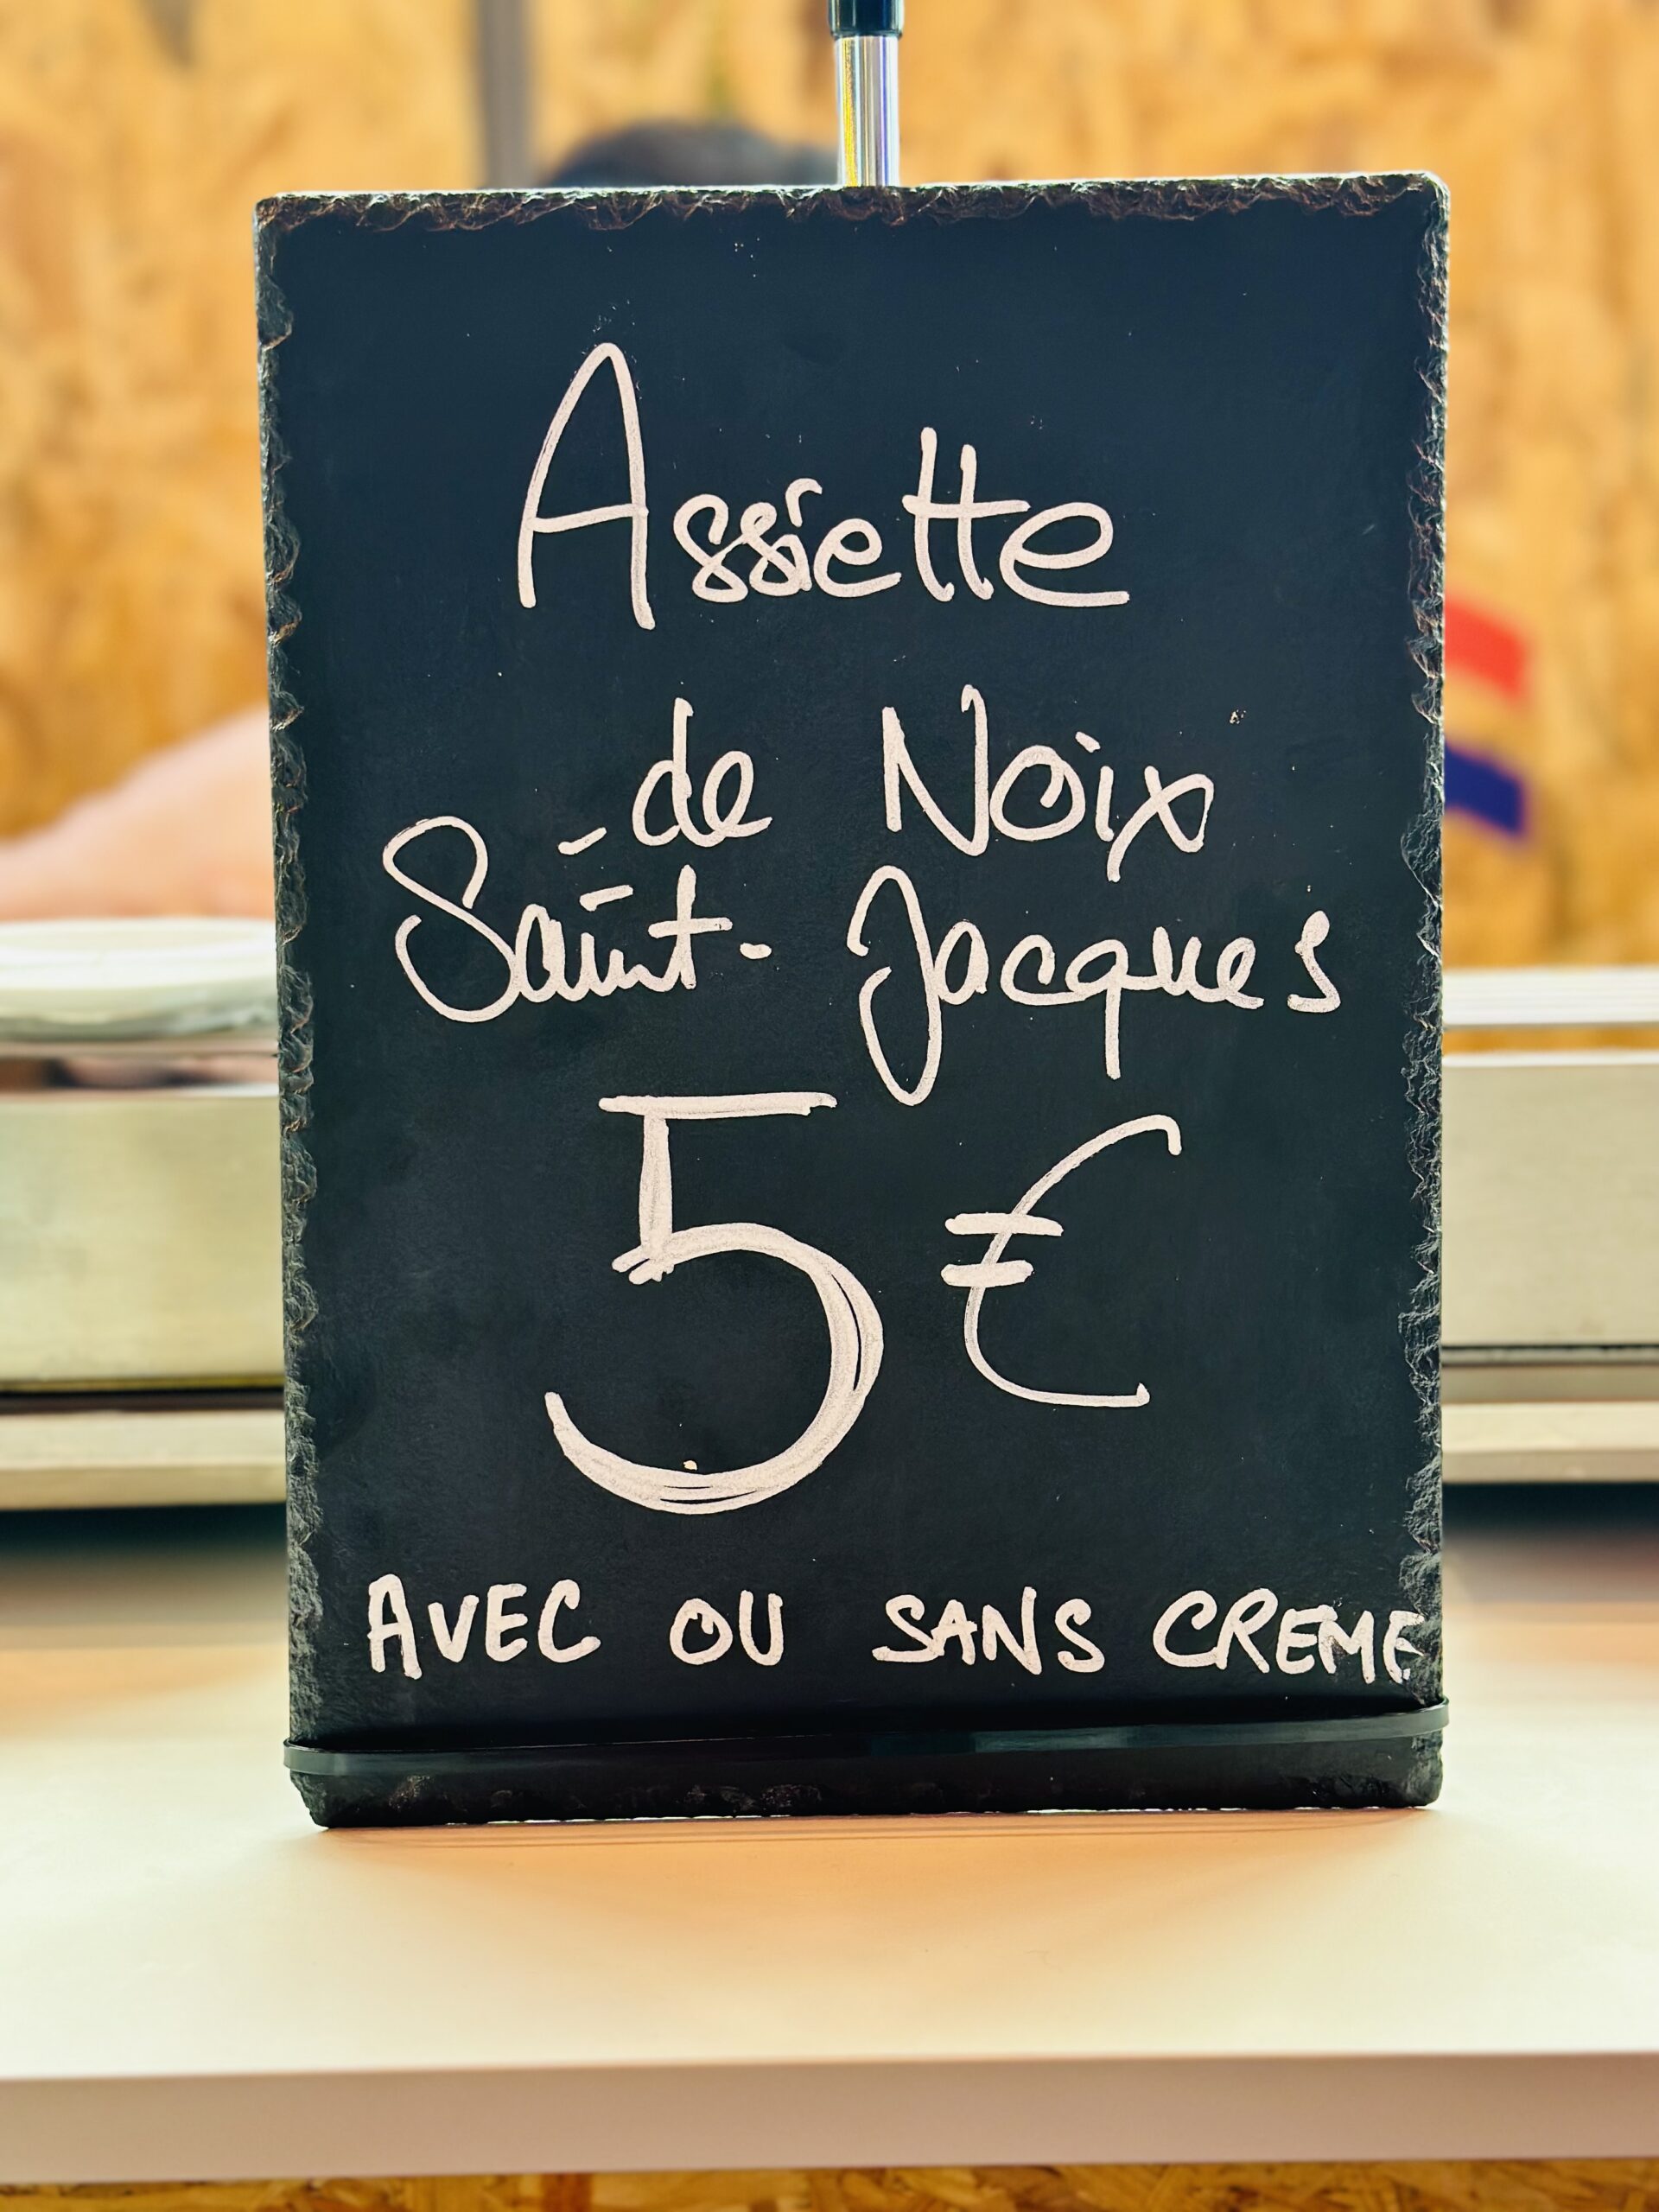 Assiette
de Noix
Saint-Jacques
5€
AVEC OU SANS CREME